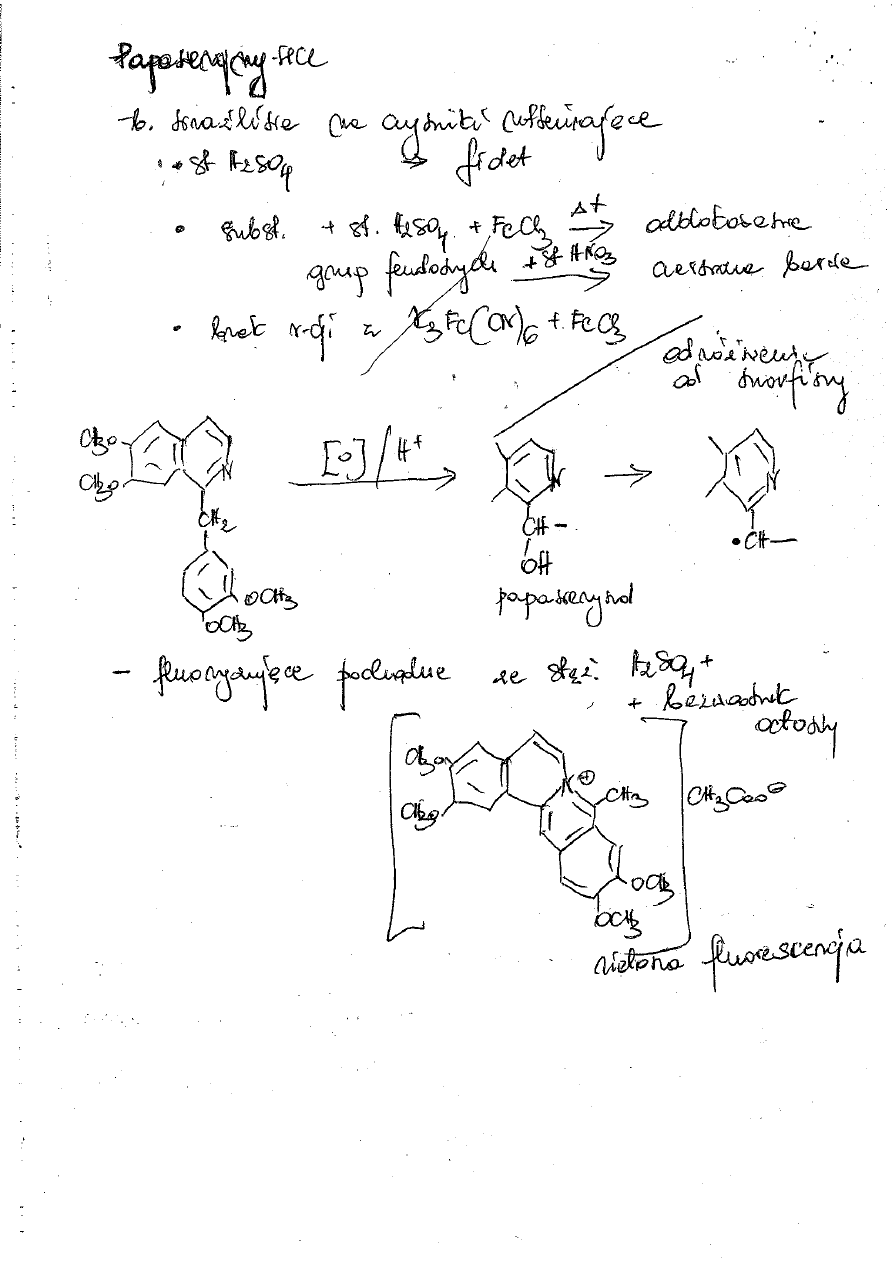 Papaweryny HCl
- b. wrażliwa na czynniki utleniające
• st H2SO4 → fiolet
• subst. + st. H2SO4 + FeCl3 Δt → odblokowanie
grup fenolowych + st HNO3 → czerwona barwa
• brak r-cji z K3Fe(CN)6 + FeCl3
odróżnienie
od morfiny
CH3O
CH3O
N
CH2
OCH3
OCH3
[O]/H+
N
CH–
OH
papawerynol
N
•CH–
- fluoryzujące pochodne ze stęż. H2SO4 +
+ bezwodnik
octowy
CH3O
CH3O
N⊕
CH3
OCH3
OCH3
CH3COO⊖
zielona fluorescencja